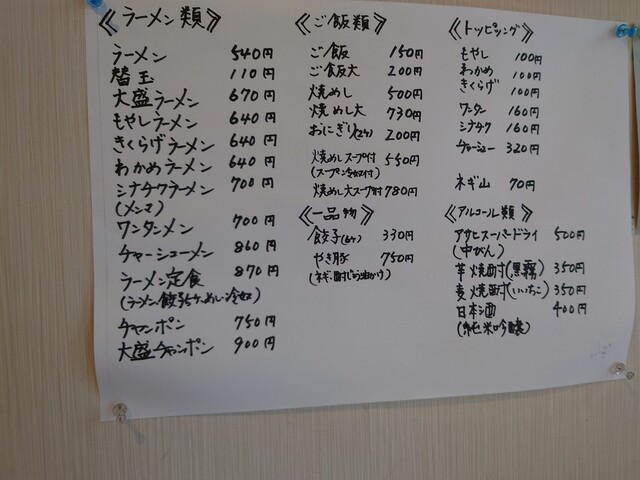 《ラーメン類》
ラーメン 540円
替玉 110円
大盛ラーメン 670円
もやしラーメン 640円
きくらげラーメン 640円
わかめラーメン 640円
シナチクラーメン 700円
(メンマ)
ワンタンメン 700円
チャーシューメン 860円
ラーメン定食 870円
(ラーメン、餃子5ケ、めし、冷奴)
チャンポン 750円
大盛チャンポン 900円
《ご飯類》
ご飯 150円
ご飯大 200円
焼めし 500円
焼めし大 730円
おにぎり(2ケ) 200円
焼めしスープ付 550円
(スープ、冷奴付)
焼めし大スープ付 780円
《一品物》
餃子(6ケ) 330円
やき豚 750円
(ネギ、酢じょう油かけ)
《トッピング》
もやし 100円
わかめ 100円
きくらげ 100円
ワンタン 160円
シナチク 160円
チャーシュー 320円
ネギ山 70円
《アルコール類》
アサヒスーパードライ 500円
(中びん)
芋焼酎(黒霧) 350円
麦焼酎(いいちこ) 350円
日本酒 400円
(純米吟醸)